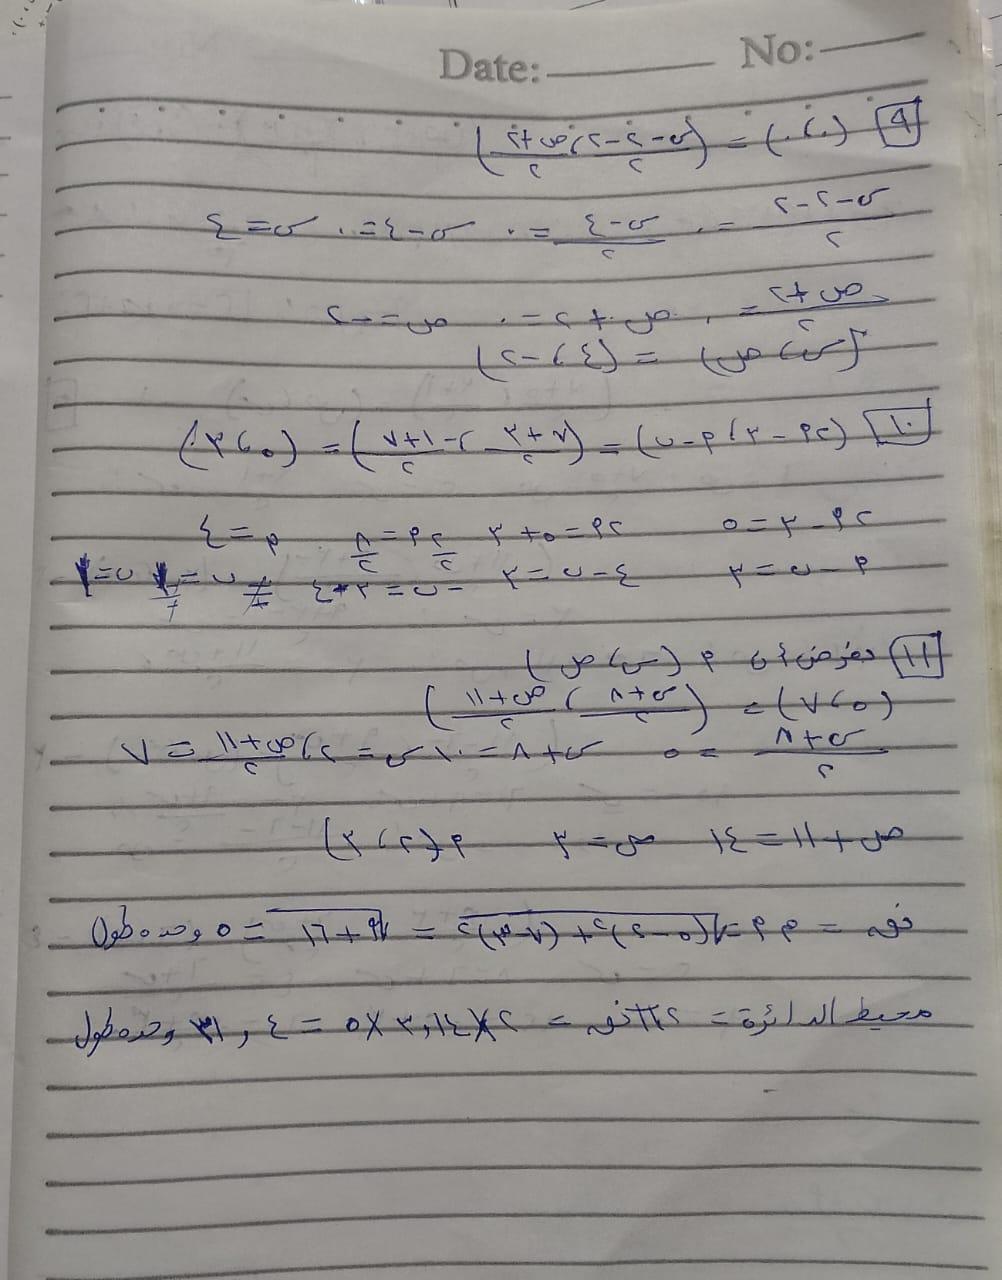 Date: No:
٩ (٠،٠) = (س-٢-٢/٢ ، ص+٢/٢)
س-٢-٢/٢ = ٠ س-٤/٢ = ٠ س-٤=٠ س=٤
ص+٢/٢ = ٠ ص+٢=٠ ص=-٢
(س،ص) = (٤،-٢)
١٠ (٢م-٣، م-ن) = (٧+٣/٢ ، -١+٧/٢) = (٥،٣)
٢م-٣=٥ ٢م=٥+٣ ٢م/٢=٨/٢ م=٤
م-ن=٣ ٤-ن=٣ -ن=٣-٤ ن=١
١١ نفرض أن م (س،ص)
(٥،٧) = (س+٨/٢ ، ص+١١/٢)
س+٨/٢ = ٥ س+٨=١٠ س=٢ ، ص+١١/٢ = ٧
ص+١١=١٤ ص=٣ م(٢،٣)
نق = م م = √(٥-٢)٢+(٧-٣)٢ = √٩+١٦ = ٥ وحده طول
محيط الدائرة = ٢πنق = ٢×٣,١٤×٥ = ٣١,٤ وحده طول